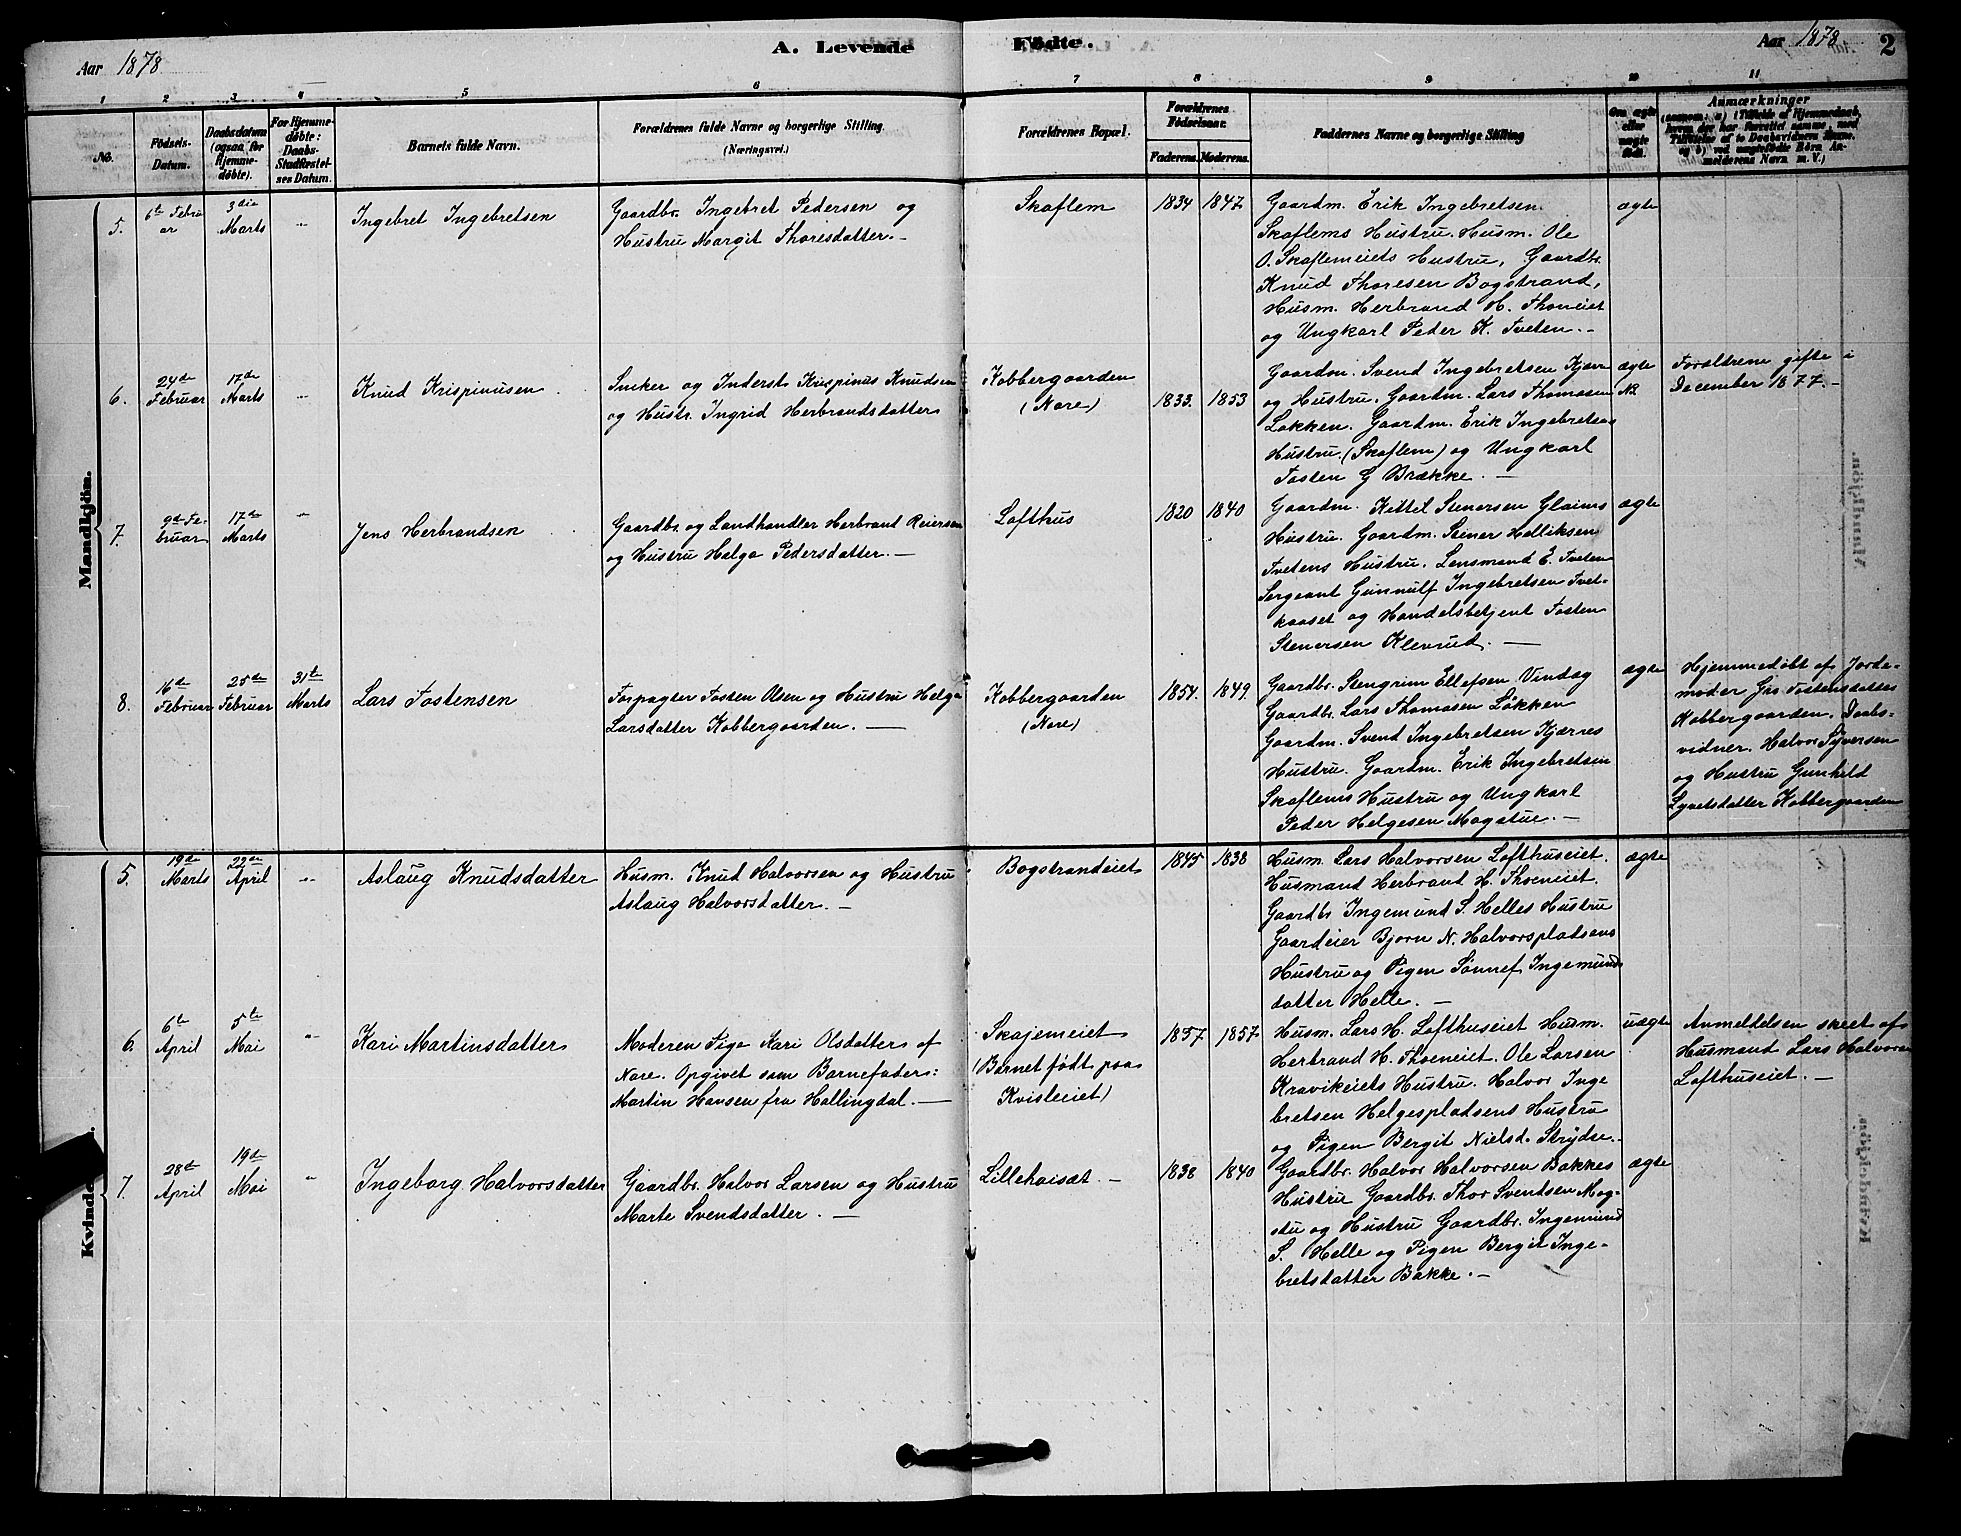 Aar 1878
A. Levende Födte.
Aar 1878
2
1 2 3 4 5 6 7 8 9 10 11
No.
Födsels-
Datum.
Daabsdatum
(ogsaa for
Hjemme-
døbte).
For Hjemme-
døbte:
Daabs-
Stadfæstel-
ses Datum.
Barnets fulde Navn.
Forældrenes fulde Navne og borgerlige Stilling.
(Næringsvei.)
Forældrenes Bopæl.
Forældrenes
Födselsaar.
Faderens. Moderens.
Faddernes Navne og borgerlige Stilling
Om ægte
eller
uægte
født.
Anmærkninger
Mandkjön.
5.
6te Febru
ar
3die
Marts
Ingebret Ingebretsen
Gaardbr. Ingebret Pedersen og
Hustru Margit Thoresdatter.-
Skaflem
1834 1847
Gaardm. Erik Ingebretsen
Skaflems Hustru. Husm. Ole
O. Skaflemeiets Hustru, Gaardbr.
Knud Thoresen Bogstrand,
Husm. Herbrand H. Thoneiet
og Ungkarl Peder K. Tveten.-
ægte
6.
24de
Februar
17de
Marts
Knud Krispinusen
Smker og Inderst Krispinus Knudsen
og Hustr. Ingrid Herbrandsdatter
Kobbergaarden
(Nore)
1833. 1853
Gaardm. Svend Ingebretsen Kjær
og Hustru. Gaardm. Lars Thomasen
Løkken. Gaardm. Erik Ingebretsens
Hustru. (Skaflem) og Ungkarl
Tosten G Brække.-
ægte
NB
Forældrene gifte i
December 1877.-
7.
9de Fe-
bruar
17de
Marts
Jens Herbrandsen
Gaardbr. og Landhandler Herbrand Reiersen
og Hustru Helga Pedersdatter.-
Lofthus
1820 1840
Gaardm. Kittel Stenersen Glaims
Hustru. Gaardm. Steiner Helliksen
Tvetens Hustru. Lensmand E. Tveten
Sergeant Gunnulf Ingebretsen Tvet-
kaaset og Handelsbetjent Tosten
Stenersen Klevrud.-
ægte
8.
16de
Februar
25de
Februar
31te
Marts
Lars Tostensen
Forpagter Tosten Olsen og Hustru Helga
Larsdatter Kobbergaarden.-
Kobbergaarden
(Nore)
1854. 1849.
Gaardbr. Stengrim Ellefsen Vindeg
Gaardbr. Lars Thomasen Løkken
Gaardm. Svend Ingebretsen Kjærnes
Hustru. Gaardm. Erik Ingebretsen
Skaflems Hustru og Ungkarl
Peder Helgesen Mogstue.-
ægte
Hjemmedøbt af Jorde-
moder Gro Tostensdatter
Kobbergaarden. Daabs-
vidner. Halvor Syversen
og Hustru Gunhild
Kobbergaarden
Kvinde
5.
19de
Marts
22de
April
Aslaug Knudsdatter
Husm. Knud Halvorsen og Hustru
Aslaug Halvorsdatter.-
Bogstrandeiet
1845 1838
Husm. Lars Halvorsen Lofthuseiet.
Husmand Herbrand H. Thoeneiet.
Gaardbr Ingemund S. Helles Hustru
Gaardeier Bjørn N. Halvorspladsens
Hustru og Pigen Sønnef Ingemunds
datter Helle.-
ægte
6.
6te
April
5te
Mai
Kari Martinsdatter
Moderen Pige Kari Olsdatter af
Nore. Opgivet som Barnefader:
Martin Hansen fra Hallingdal.-
Skajemeiet
(Barnet født paa
Kvisleeiet)
1857. 1857.
Husm. Lars H. Lofthuseiet Husm.
Herbrand H. Thoeneiet. Ole Larsen
Kravikeiets Hustru. Halvor Inge
bretsen Helgespladsens Hustru
og Pigen Bergit Nielsd. Strydse.
uægte
Anmeldelsen skeet af
Husmand Lars Halvorsen
Lofthuseiet.-
7.
28de
April
19de
Mai
Ingeborg Halvorsdatter
Gaardbr. Halvor Larsen og Hustru
Marte Svendsdatter.-
Lillehaisæt.-
1838 1840
Gaardbr. Halvor Halvorsen Bakkes
Hustru Gaardbr. Thor Svendsen Mog-
stu og Hustru Gaardbr. Ingemund
S. Helle og Pigen Bergit Inge-
bretsdatter Bakke.-
ægte